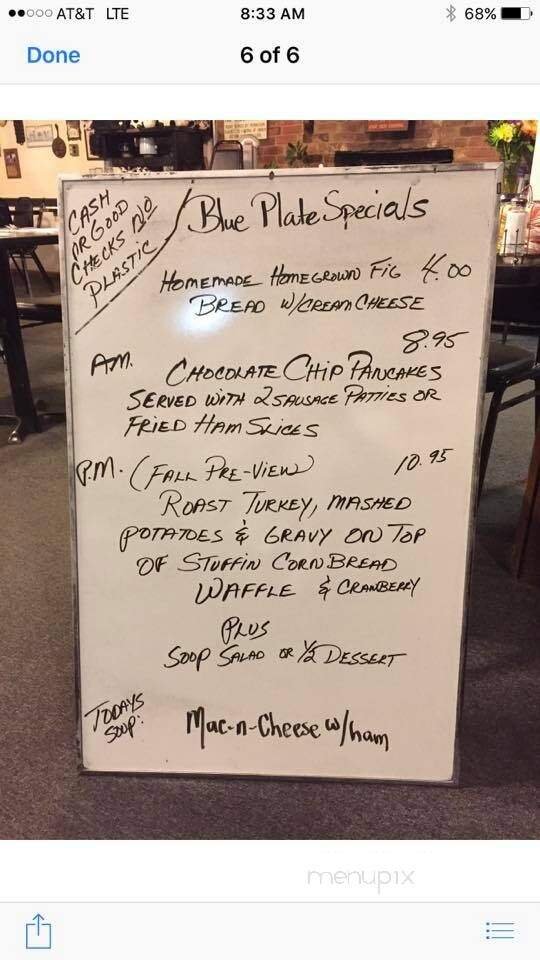 AT&T LTE 8:33 AM 68%
Done 6 of 6
CASH
OR GOOD
CHECKS NO
PLASTIC
Blue Plate Specials
HOMEMADE HOMEGROWN FIG 4.00
BREAD W/CREAM CHEESE
8.95
AM. CHOCOLATE CHIP PANCAKES
SERVED WITH 2 SAUSAGE PATTIES OR
FRIED HAM SLICES
P.M. (FALL PRE-VIEW) 10.95
ROAST TURKEY, MASHED
POTATOES & GRAVY ON TOP
OF STUFFIN CORN BREAD
WAFFLE & CRANBERRY
PLUS
SOOP SALAD OR 1/2 DESSERT
TODAYS
SOUP:
Mac-n-Cheese w/ham
menupix